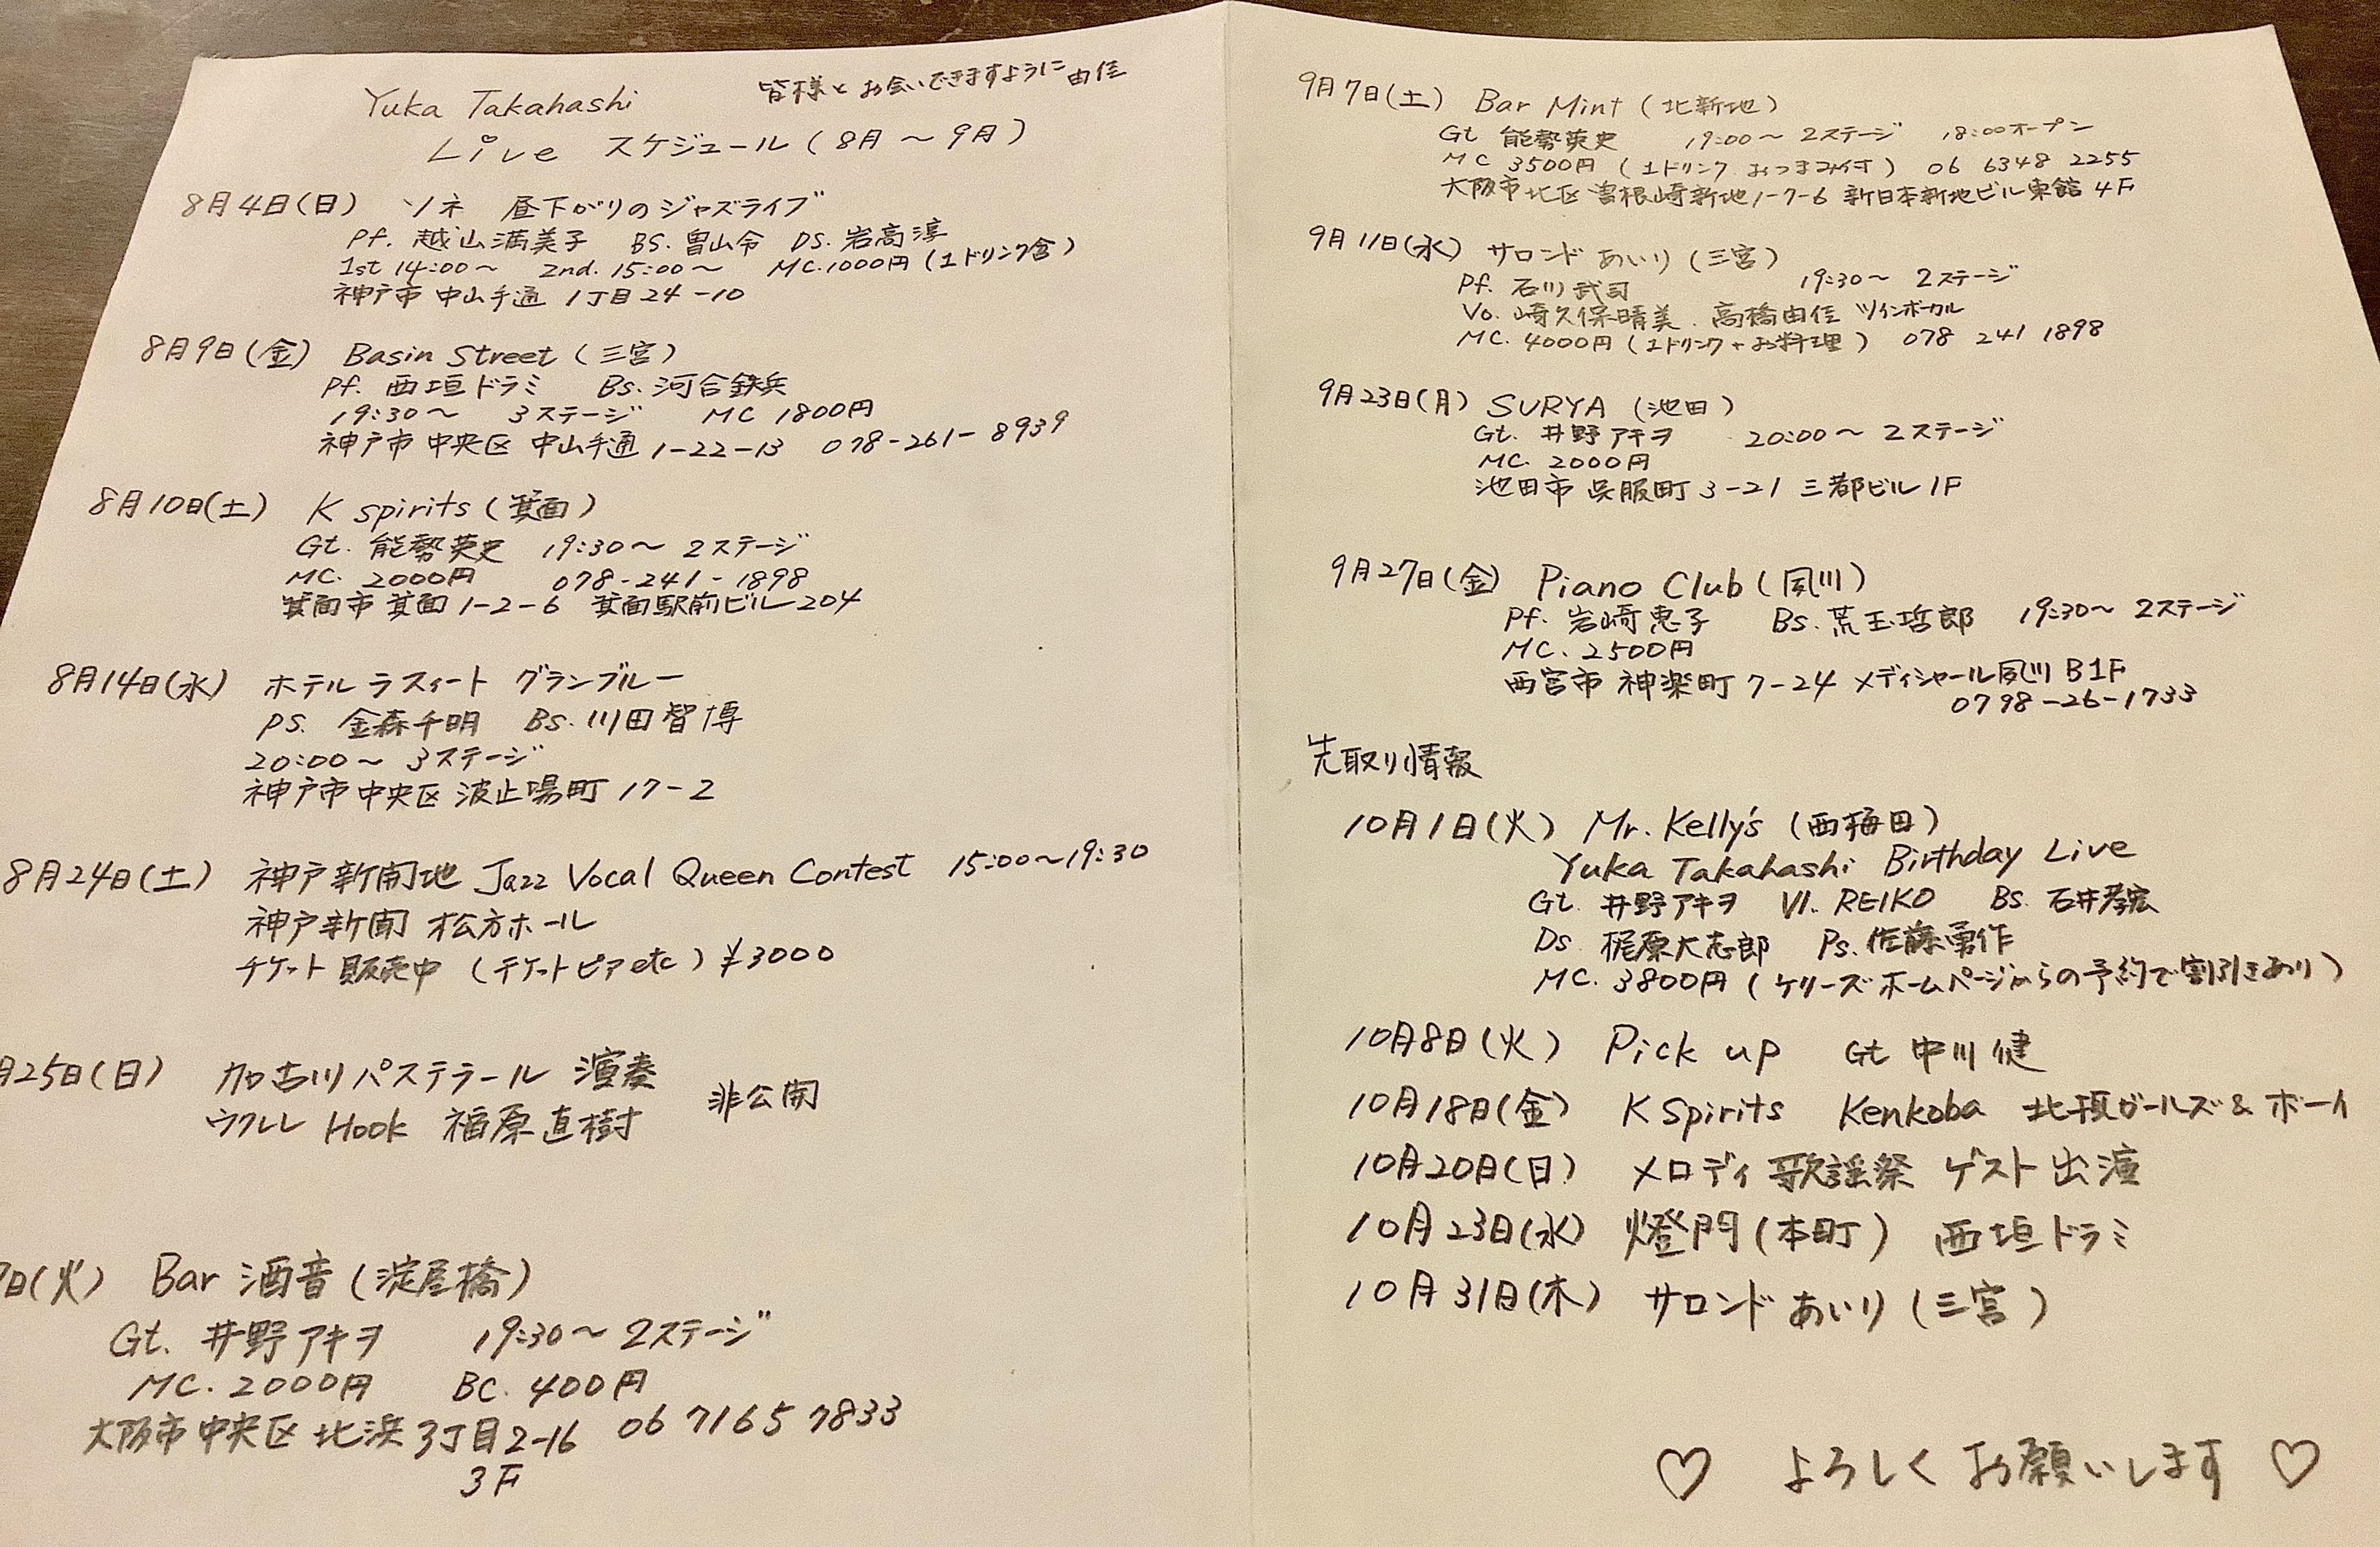 Yuka Takahashi
皆様とお会いできますように 由佳
Live スケジュール (8月〜9月)
8月4日(日) ソネ 昼下がりのジャズライブ
Pf. 越山満美子 BS. 畠山令 DS. 岩高淳
1st 14:00〜 2nd. 15:00〜 MC.1000円(1ドリンク含)
神戸市 中山手通 1丁目24-10
8月9日(金) Basin Street (三宮)
Pf. 西垣ドラミ Bs. 河合鉄兵
19:30〜 3ステージ MC 1800円
神戸市 中央区 中山手通 1-22-13 078-261-8939
8月10日(土) K spirits (箕面)
Gt. 能勢英史 19:30〜 2ステージ
MC. 2000円 078-241-1898
箕面市 箕面 1-2-6 箕面駅前ビル204
8月14日(水) ホテル ラスィート グランブルー
PS. 金森千明 Bs. 川田智博
20:00〜 3ステージ
神戸市中央区 波止場町 17-2
8月24日(土) 神戸新開地 Jazz Vocal Queen Contest 15:00〜19:30
神戸新聞 松方ホール
チケット 販売中 (チケットピアetc) ¥3000
月25日(日) 加古川パステラール 演奏
ウクレレ Hook 福原直樹 非公開
日(火) Bar 酒音 (淀屋橋)
Gt. 井野アキヲ 19:30〜 2ステージ
MC. 2000円 BC. 400円
大阪市中央区 北浜 3丁目2-16 06 7165 7833
3F
9月7日(土) Bar Mint (北新地)
Gt 能勢英史 19:00〜 2ステージ 18:00オープン
MC 3500円 (1ドリンク おつまみ付) 06 6348 2255
大阪市北区 曽根崎新地1-7-6 新日本新地ビル東館 4F
9月11日(水) サロンド あいり (三宮)
Pf. 石川武司 19:30〜 2ステージ
Vo. 崎久保晴美. 高橋由佳 ツインボーカル
MC. 4000円 (1ドリンク+お料理) 078 241 1898
9月23日(月) SURYA (池田)
Gt. 井野アキヲ 20:00〜 2ステージ
MC. 2000円
池田市 呉服町 3-21 三都ビル 1F
9月27日(金) Piano Club (夙川)
Pf. 岩崎恵子 Bs. 荒玉哲郎 19:30〜 2ステージ
MC. 2500円
西宮市 神楽町 7-24 メディシャール夙川 B1F
0798-26-1733
先取り情報
10月1日(火) Mr. Kelly's (西梅田)
Yuka Takahashi Birthday Live
Gt. 井野アキヲ Vl. REIKO Bs. 石井孝宏
Ds. 梶原大志郎 Ps. 佐藤勇作
MC. 3800円 (ケリーズホームページからの予約で割引きあり)
10月8日(火) Pick up Gt 中川健
10月18日(金) K Spirits Kenkoba 北摂ガールズ & ボーイ
10月20日(日) メロディ歌謡祭 ゲスト出演
10月23日(水) 燈門 (本町) 西垣ドラミ
10月31日(木) サロンド あいり (三宮)
♡ よろしく お願いします ♡